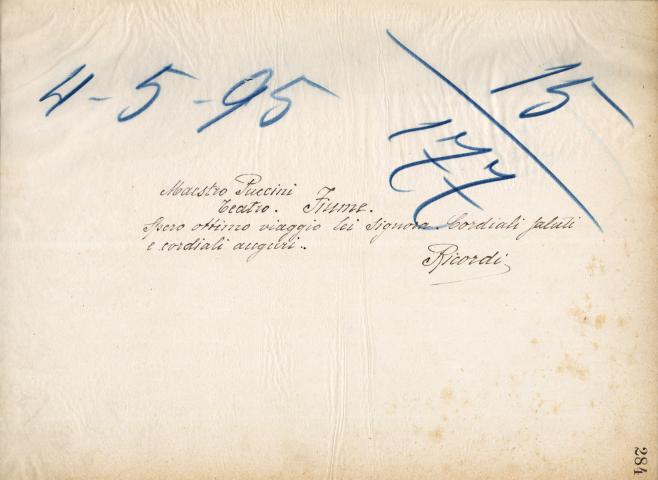 4-5-95
15
177
Maestro Puccini
Teatro. Fiume.
Spero ottimo viaggio lei Signora. Cordiali saluti
e cordiali auguri..
Ricordi
284